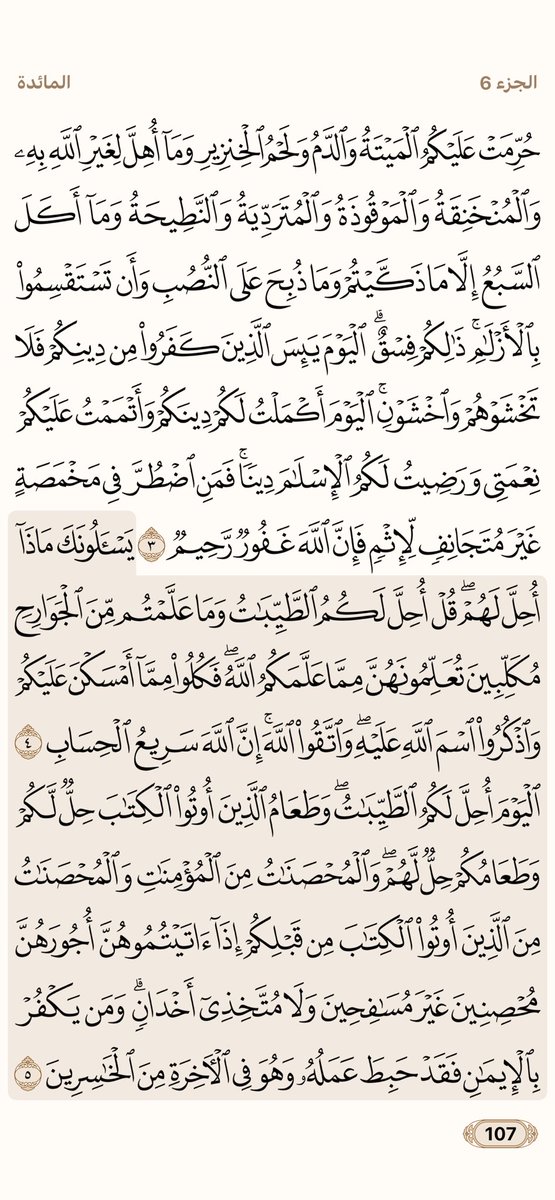 الجزء 6
المائدة
حُرِّمَتْ عَلَيْكُمُ ٱلْمَيْتَةُ وَٱلدَّمُ وَلَحْمُ ٱلْخِنزِيرِ وَمَآ أُهِلَّ لِغَيْرِ ٱللَّهِ بِهِۦ
وَٱلْمُنْخَنِقَةُ وَٱلْمَوْقُوذَةُ وَٱلْمُتَرَدِّيَةُ وَٱلنَّطِيحَةُ وَمَآ أَكَلَ
ٱلسَّبُعُ إِلَّا مَا ذَكَّيْتُمْ وَمَا ذُبِحَ عَلَى ٱلنُّصُبِ وَأَن تَسْتَقْسِمُوا۟
بِٱلْأَزْلَـٰمِ ۚ ذَٰلِكُمْ فِسْقٌ ۗ ٱلْيَوْمَ يَئِسَ ٱلَّذِينَ كَفَرُوا۟ مِن دِينِكُمْ فَلَا
تَخْشَوْهُمْ وَٱخْشَوْنِ ۚ ٱلْيَوْمَ أَكْمَلْتُ لَكُمْ دِينَكُمْ وَأَتْمَمْتُ عَلَيْكُمْ
نِعْمَتِى وَرَضِيتُ لَكُمُ ٱلْإِسْلَـٰمَ دِينًا ۚ فَمَنِ ٱضْطُرَّ فِى مَخْمَصَةٍ
غَيْرَ مُتَجَانِفٍ لِّإِثْمٍ ۙ فَإِنَّ ٱللَّهَ غَفُورٌ رَّحِيمٌ ٣ يَسْـَٔلُونَكَ مَاذَآ
أُحِلَّ لَهُمْ ۖ قُلْ أُحِلَّ لَكُمُ ٱلطَّيِّبَـٰتُ ۙ وَمَا عَلَّمْتُم مِّنَ ٱلْجَوَارِحِ
مُكَلِّبِينَ تُعَلِّمُونَهُنَّ مِمَّا عَلَّمَكُمُ ٱللَّهُ ۖ فَكُلُوا۟ مِمَّآ أَمْسَكْنَ عَلَيْكُمْ
وَٱذْكُرُوا۟ ٱسْمَ ٱللَّهِ عَلَيْهِ ۖ وَٱتَّقُوا۟ ٱللَّهَ ۚ إِنَّ ٱللَّهَ سَرِيعُ ٱلْحِسَابِ ٤
ٱلْيَوْمَ أُحِلَّ لَكُمُ ٱلطَّيِّبَـٰتُ ۖ وَطَعَامُ ٱلَّذِينَ أُوتُوا۟ ٱلْكِتَـٰبَ حِلٌّ لَّكُمْ
وَطَعَامُكُمْ حِلٌّ لَّهُمْ ۖ وَٱلْمُحْصَنَـٰتُ مِنَ ٱلْمُؤْمِنَـٰتِ وَٱلْمُحْصَنَـٰتُ
مِنَ ٱلَّذِينَ أُوتُوا۟ ٱلْكِتَـٰبَ مِن قَبْلِكُمْ إِذَآ ءَاتَيْتُمُوهُنَّ أُجُورَهُنَّ
مُحْصِنِينَ غَيْرَ مُسَـٰفِحِينَ وَلَا مُتَّخِذِىٓ أَخْدَانٍ ۗ وَمَن يَكْفُرْ
بِٱلْإِيمَـٰنِ فَقَدْ حَبِطَ عَمَلُهُۥ وَهُوَ فِى ٱلْـَٔاخِرَةِ مِنَ ٱلْخَـٰسِرِينَ ٥
107